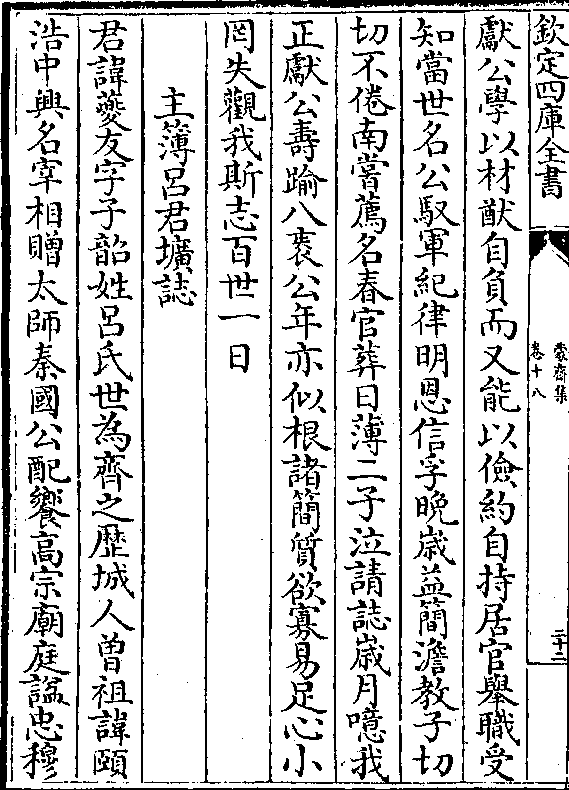 獻公學以材猷自負而又能以儉約自持居官舉職受
知當世名公馭軍紀律明恩信孚晩歳益簡澹教子切
切不倦南嘗薦名春官葬日薄二子泣請誌歳月噫我
正獻公壽踰八袠公年亦似根諸簡質欲寡易足心小
罔失觀我斯志百世一日
主簿呂君壙誌
君諱夔友字子韶姓呂氏世為齊之歴城人曽祖諱頤
浩中興名宰相贈太師秦國公配饗高宗廟庭諡忠穆
欽定四庫全書
蒙齋集
卷十八
二十二